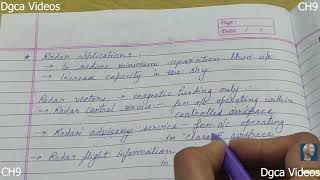 Dgca Videos
CH9
Page:
Date: / /
★ Radar applications :
→ To reduce minimum separation b/wn a/c
→ Increase capacity in the sky
Radar vectors → magnetic heading only
→ Radar control service - for a/c operating within
controlled airspace
→ Radar advisory service - for a/c operating
in class F airspace
→ Radar flight information
in
CH9
Dgca Videos